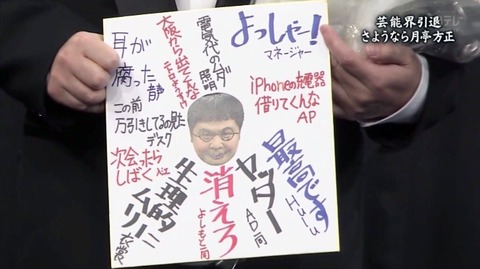 芸能界引退
さようなら月亭方正
よっしゃー!
マネージャー
電気代のムダ
照明
大阪から出てくんな
耳が
腐った
静
この前
万引きしてるの見た
デスク
iPhoneの充電器
借りてくんな
AP
次会ったら
しばく
生理的に
ムリ
衣裳
消えろ
よしもと一同
ヤッター
AD一同
最高です
Hulu